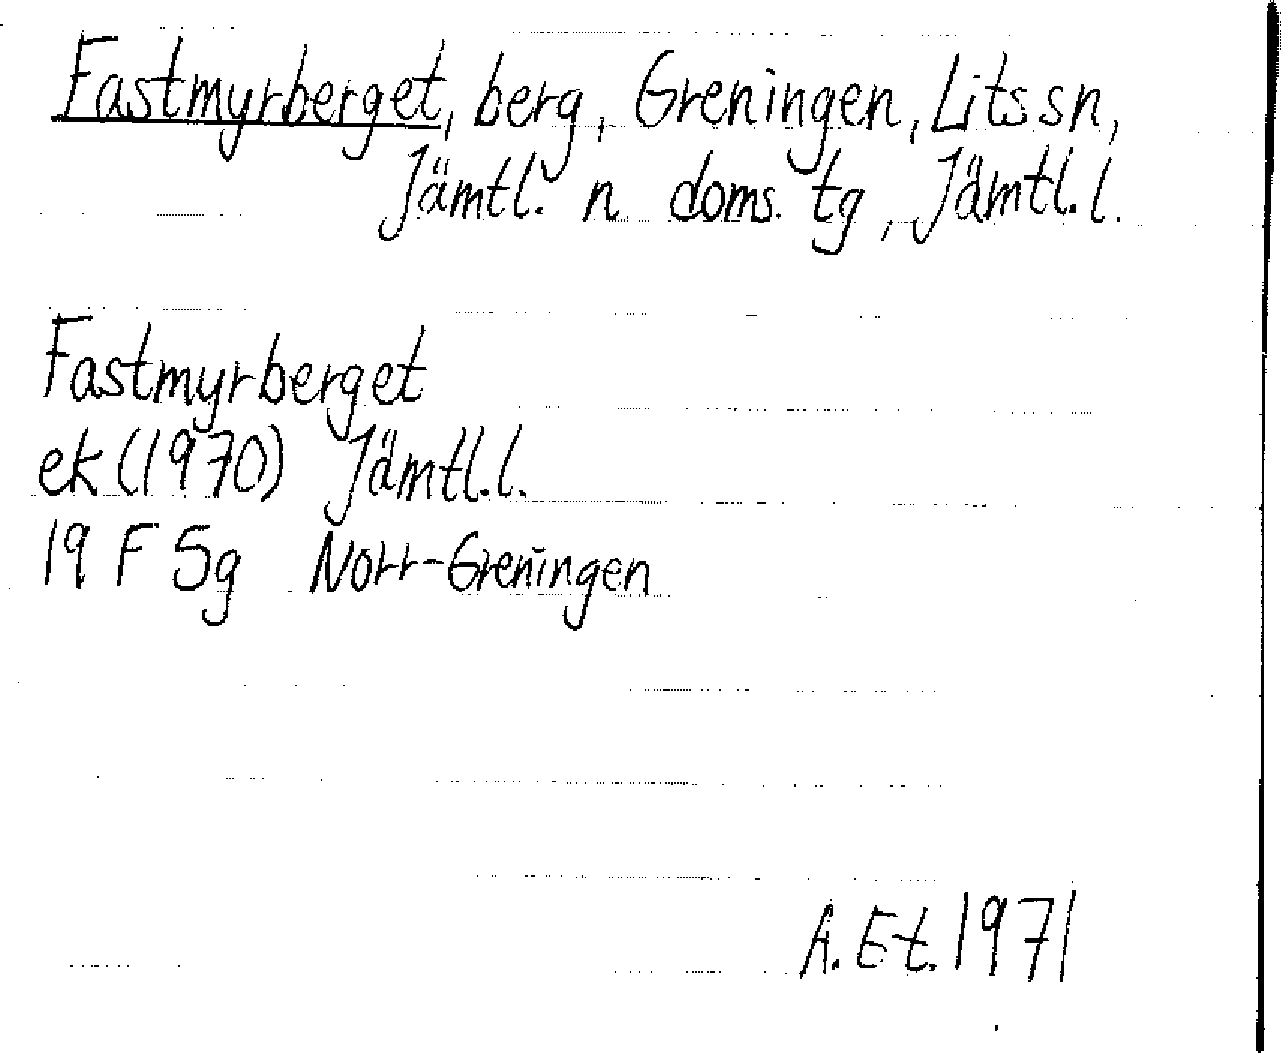 Fastmyrberget, berg, Greningen, Lits sn,
Jämtl. n doms. tg, Jämtl. l.
Fastmyrberget
ek (1970) Jämtl. l.
19 F 5g Norr-Greningen
A. Et. 1971